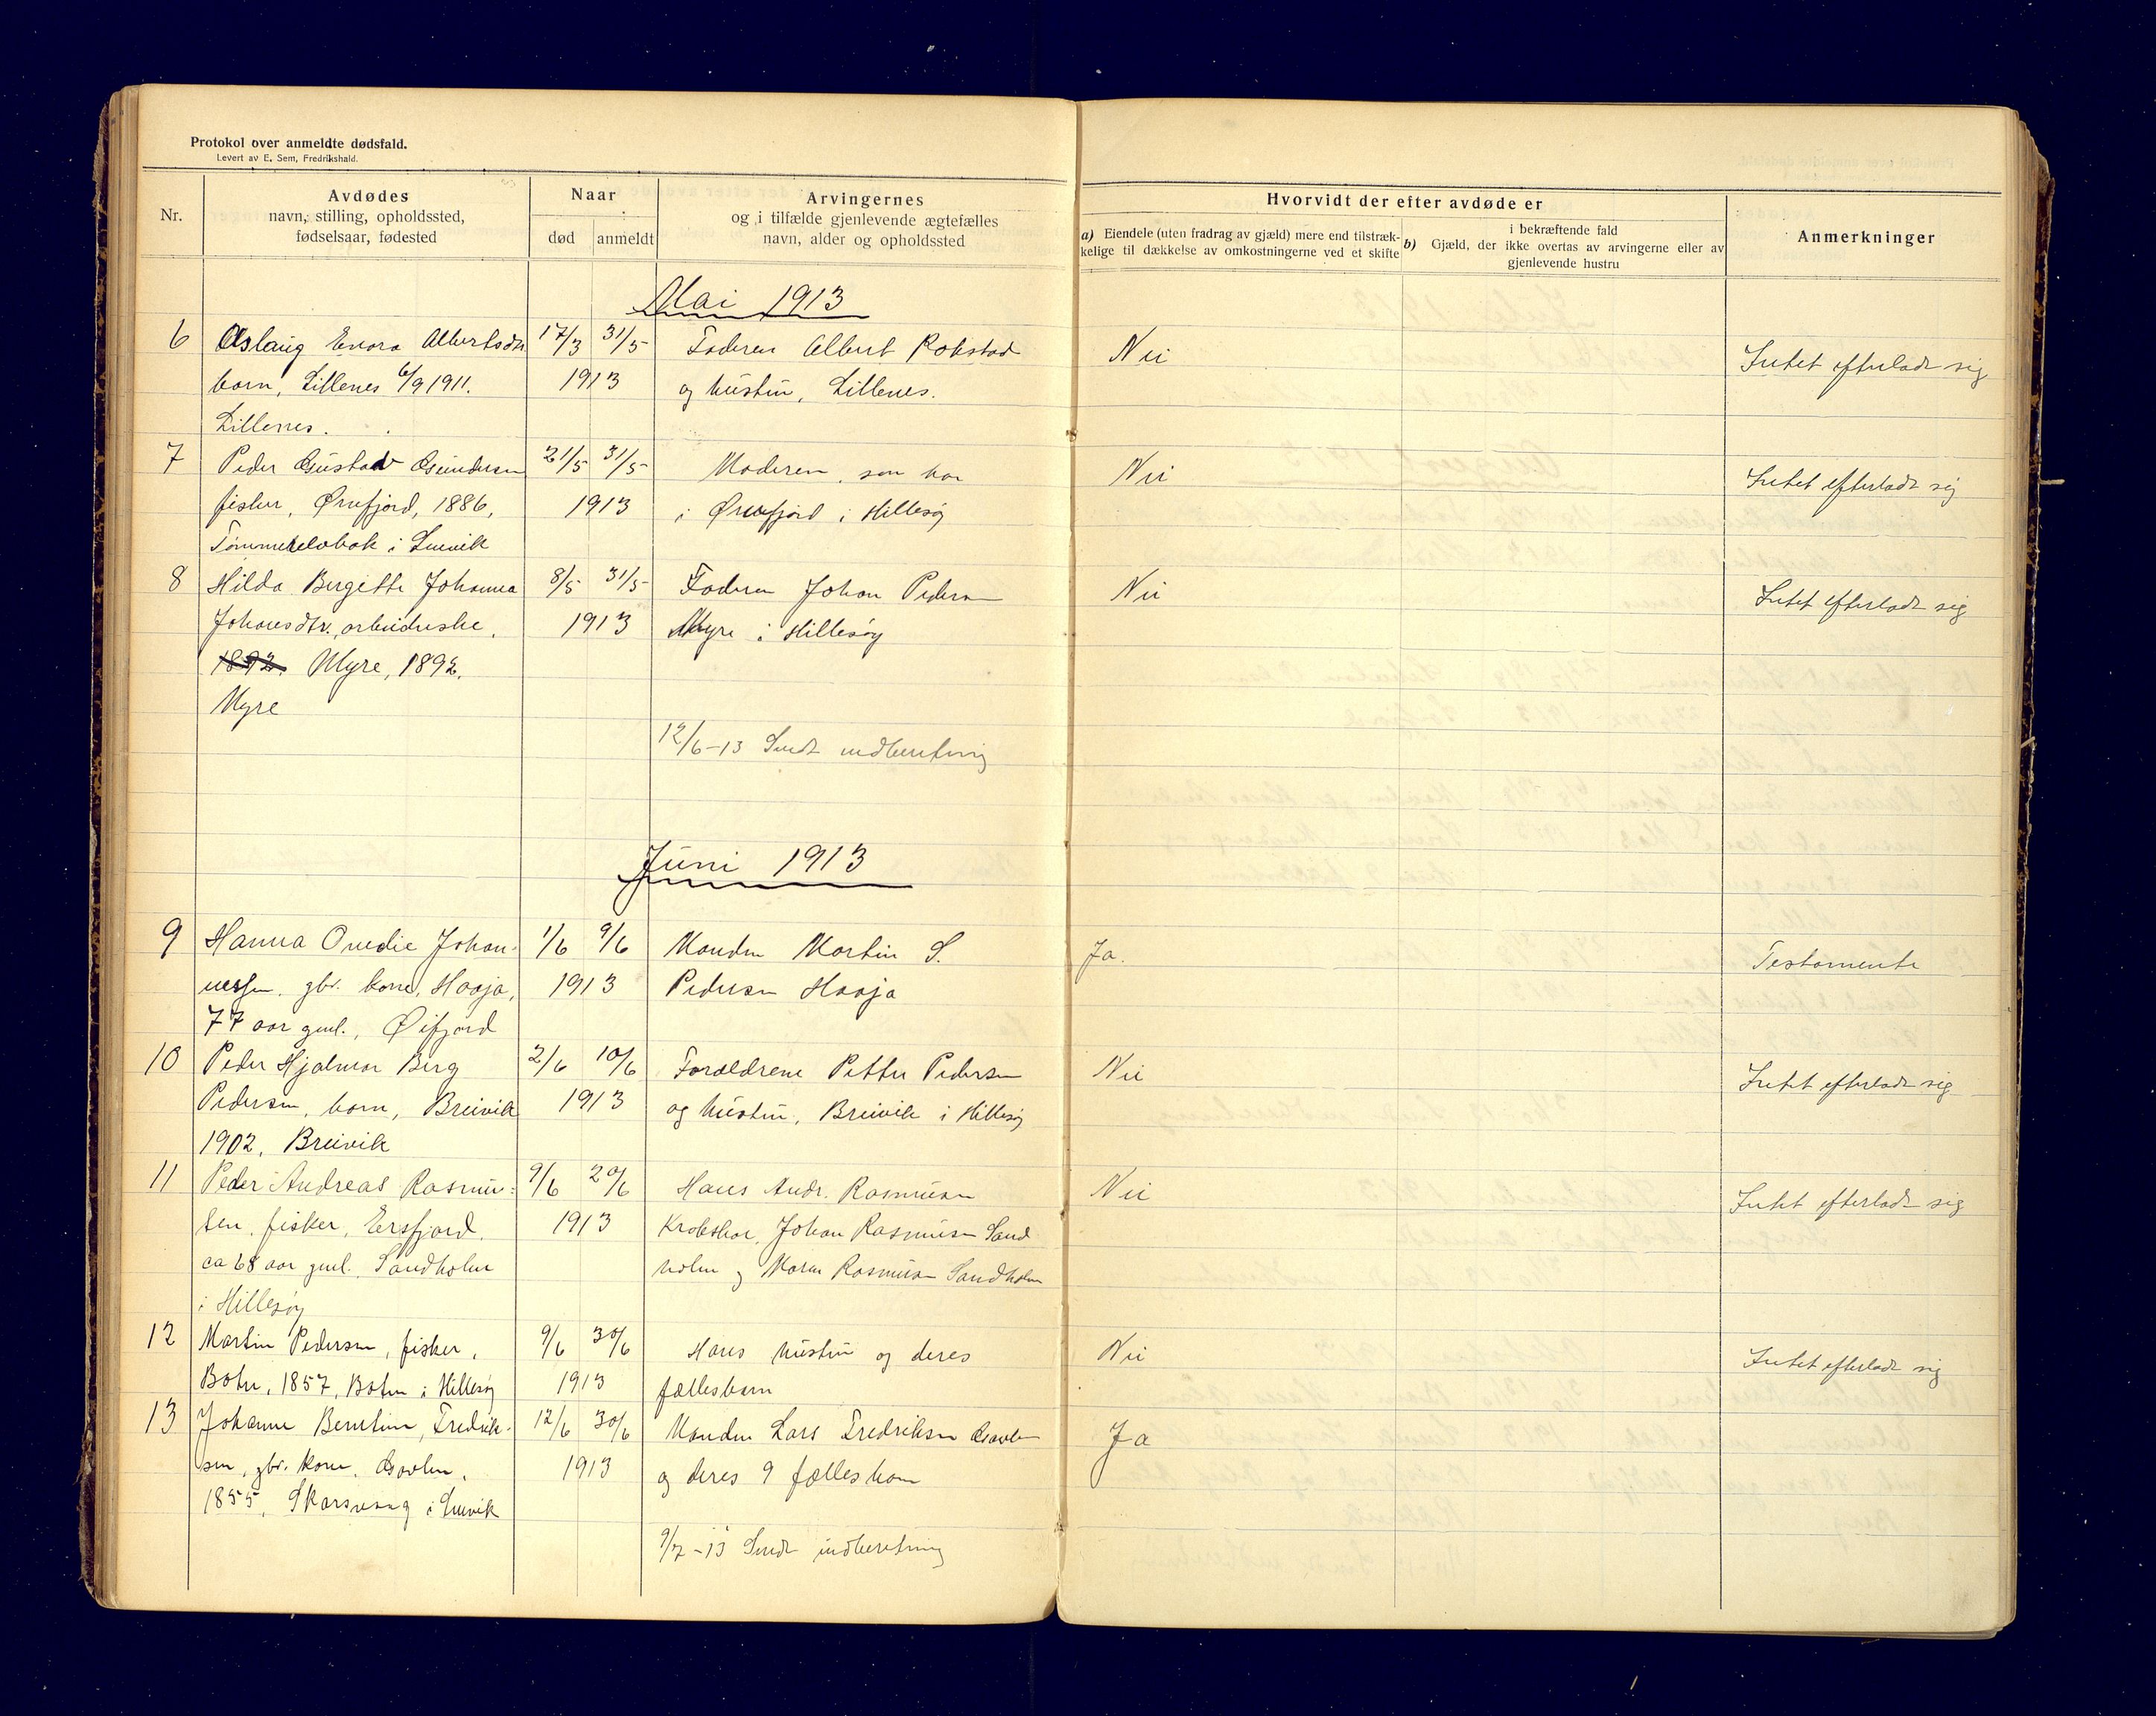 Protokol over anmeldte dødsfald.
Levert av E. Sem, Fredrikshald.
Nr.
Avdødes
navn, stilling, opholdssted,
fødselsaar, fødested
Naar
død
anmeldt
Arvingernes
og i tilfælde gjenlevende ægtefælles
navn, alder og opholdssted
Hvorvidt der efter avdøde er
a) Eiendele (uten fradrag av gjæld) mere end tilstræk-
kelige til dækkelse av omkostningerne ved et skifte
i bekræftende fald
b) Gjæld, der ikke overtas av arvingerne eller av
gjenlevende hustru
Anmerkninger
Mai 1913
6 Aslaug Enora Albertsdtr 17/3 31/5 Faderen Albert Rokstad Nei Intet efterladt sig
barn, Lillenes 6/9 1911. 1913 og hustru, Lillenes.
Lillenes.
7 Peder Gustav Gundersen 21/5 31/5 Moderen, som bor Nei Intet efterladt sig
fisker, Ørnfjord, 1886, 1913 i Ørnfjord i Hillesøy
i Lenvik
8 Hilda Bergitte Johanna 8/5 31/5 Faderen Johan Pedersen Nei Intet efterladt sig
Johansdtr., arbeiderske, 1913 Myre i Hillesøy
1892. Myre, 1892.
Myre
12/6-13 Sendt indberetning
Juni 1913
9 Hanna Ovedie Johan- 1/6 9/6 Manden Martin S. Ja. Testamente
nessen, gbr. kone, Haaja, 1913 Pedersen Haaja
77 aar gml., Øifjord
10 Peder Hjalmar Berg 2/6 10/6 Forældrene Petter Pedersen Nei Intet efterladt sig
Pedersen, barn, Breivik 1913 og hustru, Breivik i Hillesøy
1902, Breivik
11 Peder Andreas Rasmus- 9/6 20/6 Hans Andr. Rasmussen Nei Intet efterladt sig
sen, fisker, Ersfjord, 1913 Johan Rasmussen Sand
ca 68 aar gml. Sandholm holm og Maren Rasmussen Sandholm
i Hillesøy
12 Martin Pedersen, fisker, 9/6 30/6 Hans hustru og deres Nei Intet efterladt sig
Botn, 1857, Botn i Hillesøy 1913 fællesbarn
13 Johanne Berntine Fredrik- 12/6 30/6 Manden Lars Fredriksen Gavlen Ja
sen, gbr. kone, Gavlen, 1913 og deres 9 fællesbarn
1855, Skarsvaag i Lenvik
9/7-13 Sendt indberetning